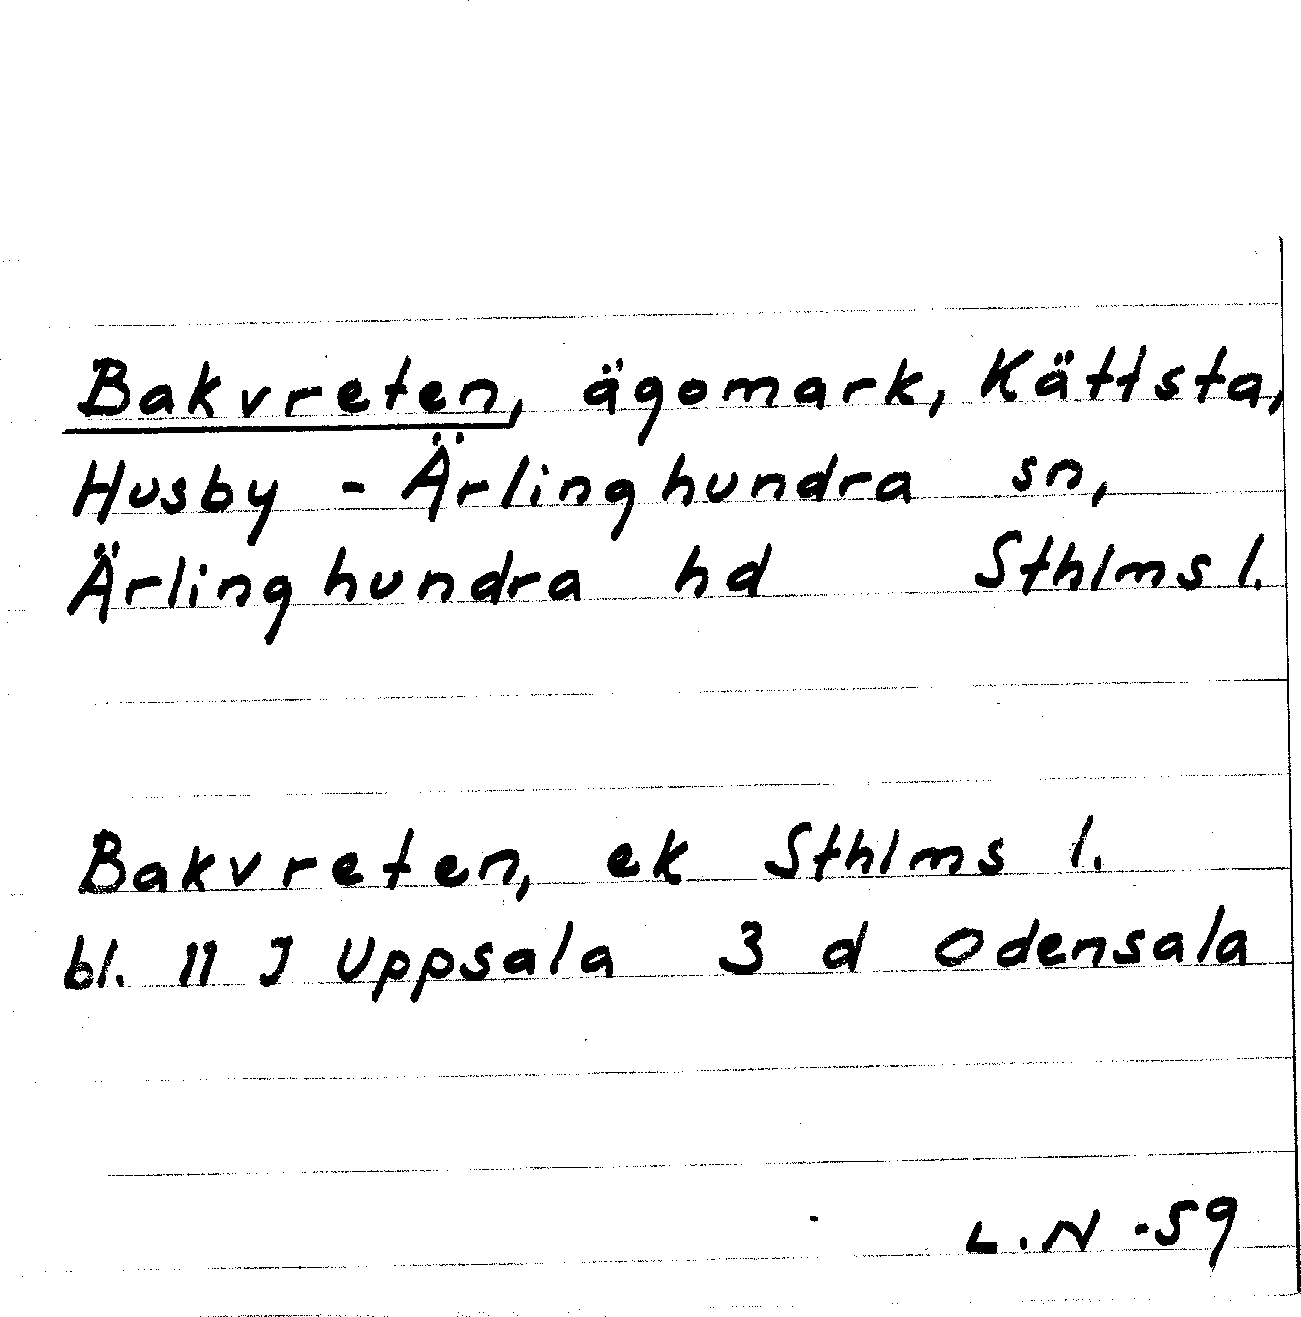 Bakvreten, ägomark, Kättsta,
Husby - Ärlinghundra sn,
Ärlinghundra hd Sthlms l.
Bakvreten, ek Sthlms l.
bl. 11 J Uppsala 3 d Odensala
L.N -59